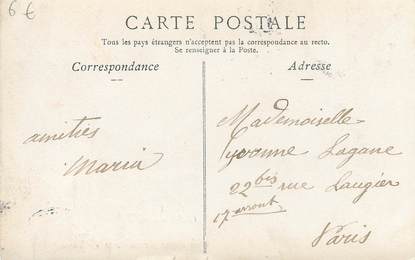 6€
CARTE POSTALE
Tous les pays étrangers n'acceptent pas la correspondance au recto.
Se renseigner à la Poste.
Correspondance
Adresse
amitiés
Maria
Mademoiselle
Yvonne Lagane
22 bis rue Laugier
17 arront
Paris